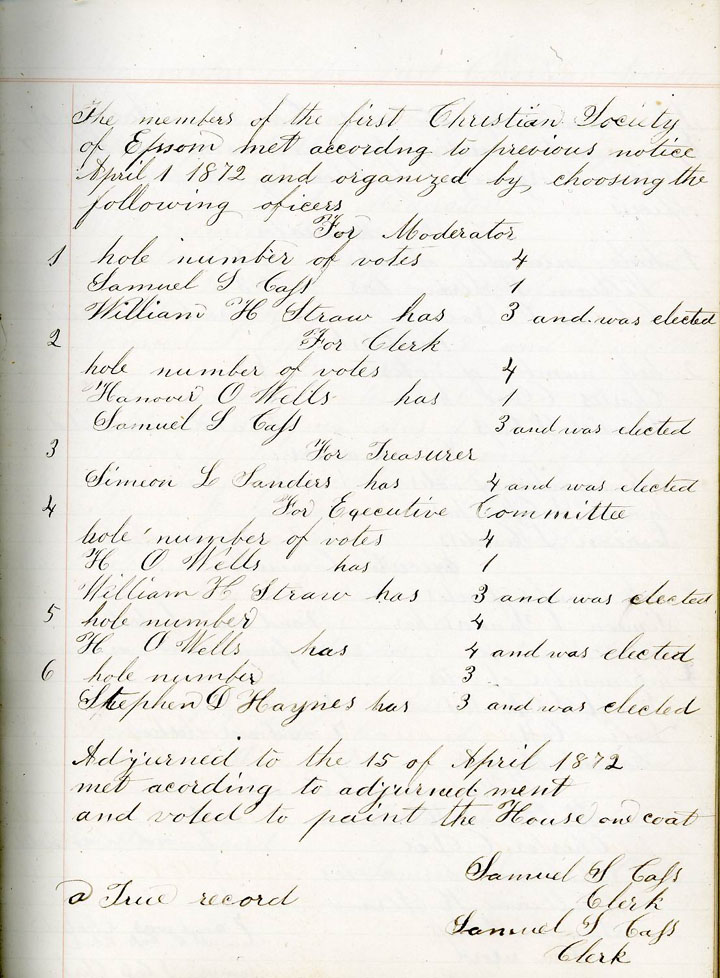 The members of the first Christian Society
of Epsom met accordng to previous notice
April 1 1872 and organized by choosing the
following oficers
For Moderator
1 hole number of votes 4
Samuel S Cass 1
William H Straw has 3 and was elected
2 For Clerk
hole number of votes 4
Hanover O Wells has 1
Samuel S Cass 3 and was elected
3 For Treasurer
Simeon L Sanders has 4 and was elected
4 For Executive Committee
hole number of votes 4
H O Wells has 1
William H Straw has 3 and was elected
5 hole number 4
H O Wells has 4 and was elected
6 hole number 3
Stephen D Haynes has 3 and was elected
Adjurned to the 15 of April 1872
met acording to adjurnedment
and voted to paint the House one coat
Samuel S Cass
Clerk
a True record
Samuel S Cass
Clerk